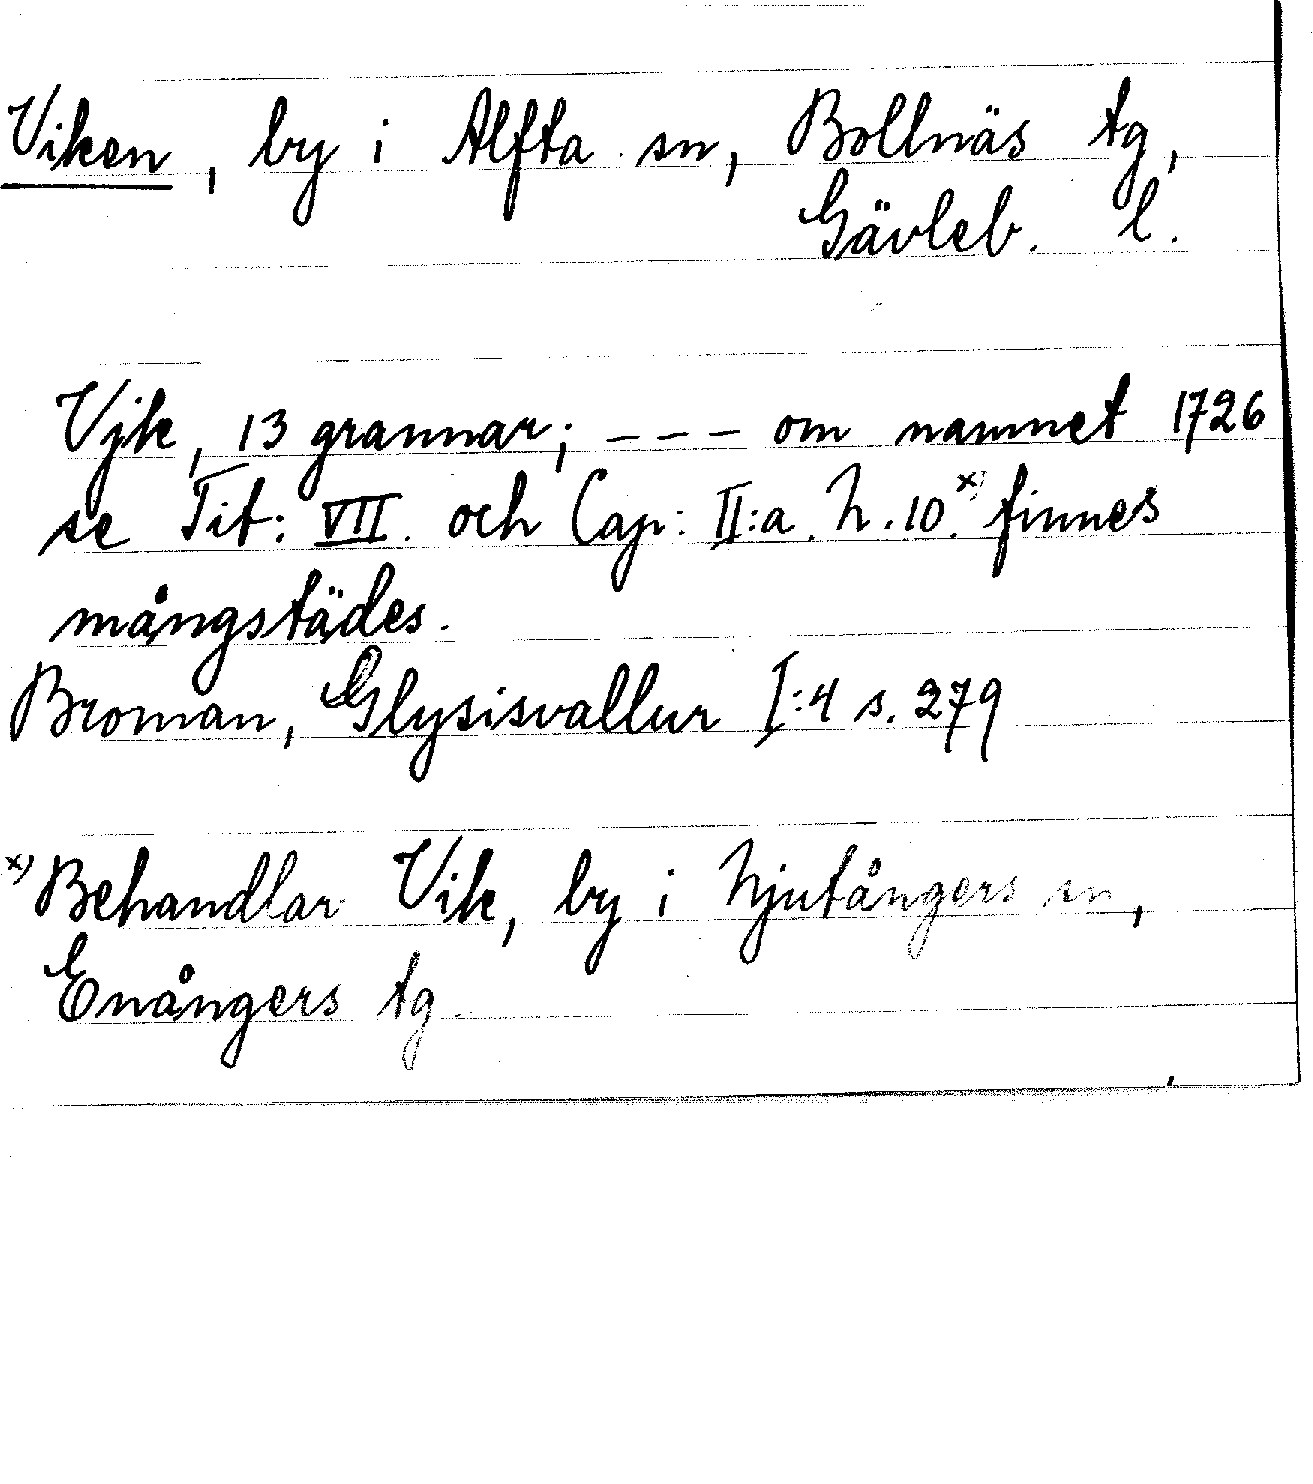 Viken, by i Alfta sn, Bollnäs tg,
Gävleb. l.
Vjk, 13 grannar; - - - om namnet 1726
se Tit: VII. och Cap: II:a. N. 10.x) finnes
mångstädes.
Broman, Glysisvallur I:4 s. 279
x) Behandlar Vik, by i Njutångers sn,
Enångers tg